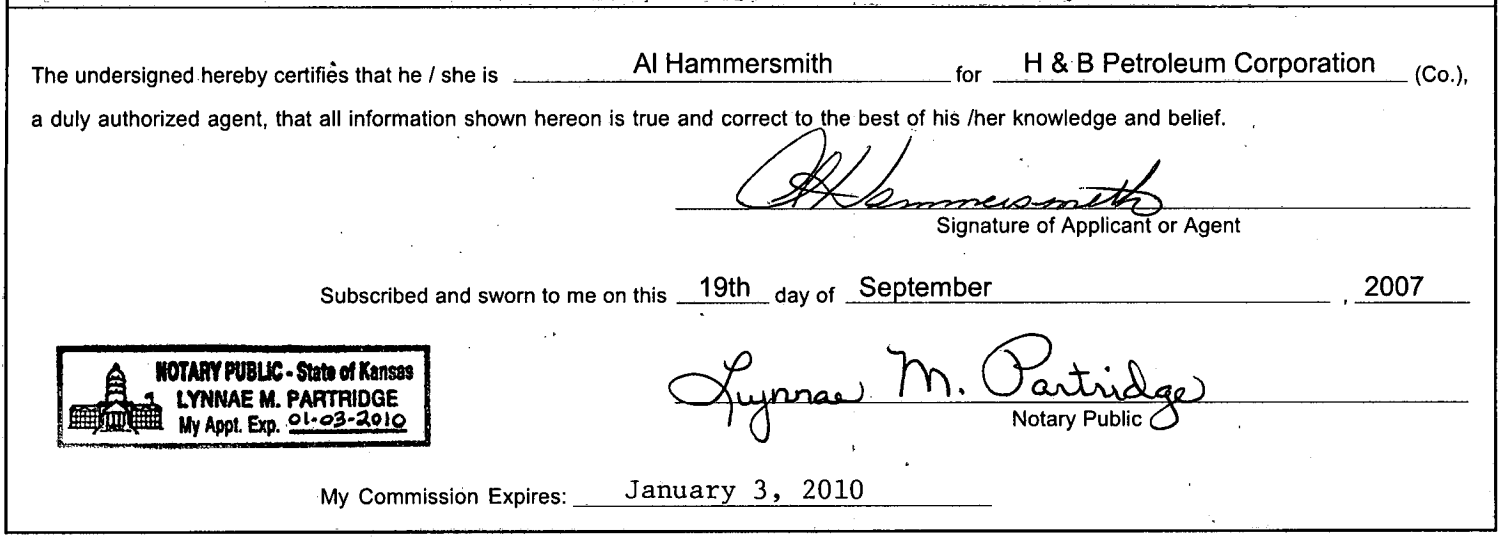 The undersigned hereby certifies that he / she is Al Hammersmith for H & B Petroleum Corporation (Co.),
a duly authorized agent, that all information shown hereon is true and correct to the best of his /her knowledge and belief.
Al Hammersmith
Signature of Applicant or Agent
Subscribed and sworn to me on this 19th day of September , 2007
NOTARY PUBLIC - State of Kansas
LYNNAE M. PARTRIDGE
My Appt. Exp. 01-03-2010
Lynnae M. Partridge
Notary Public
My Commission Expires: January 3, 2010